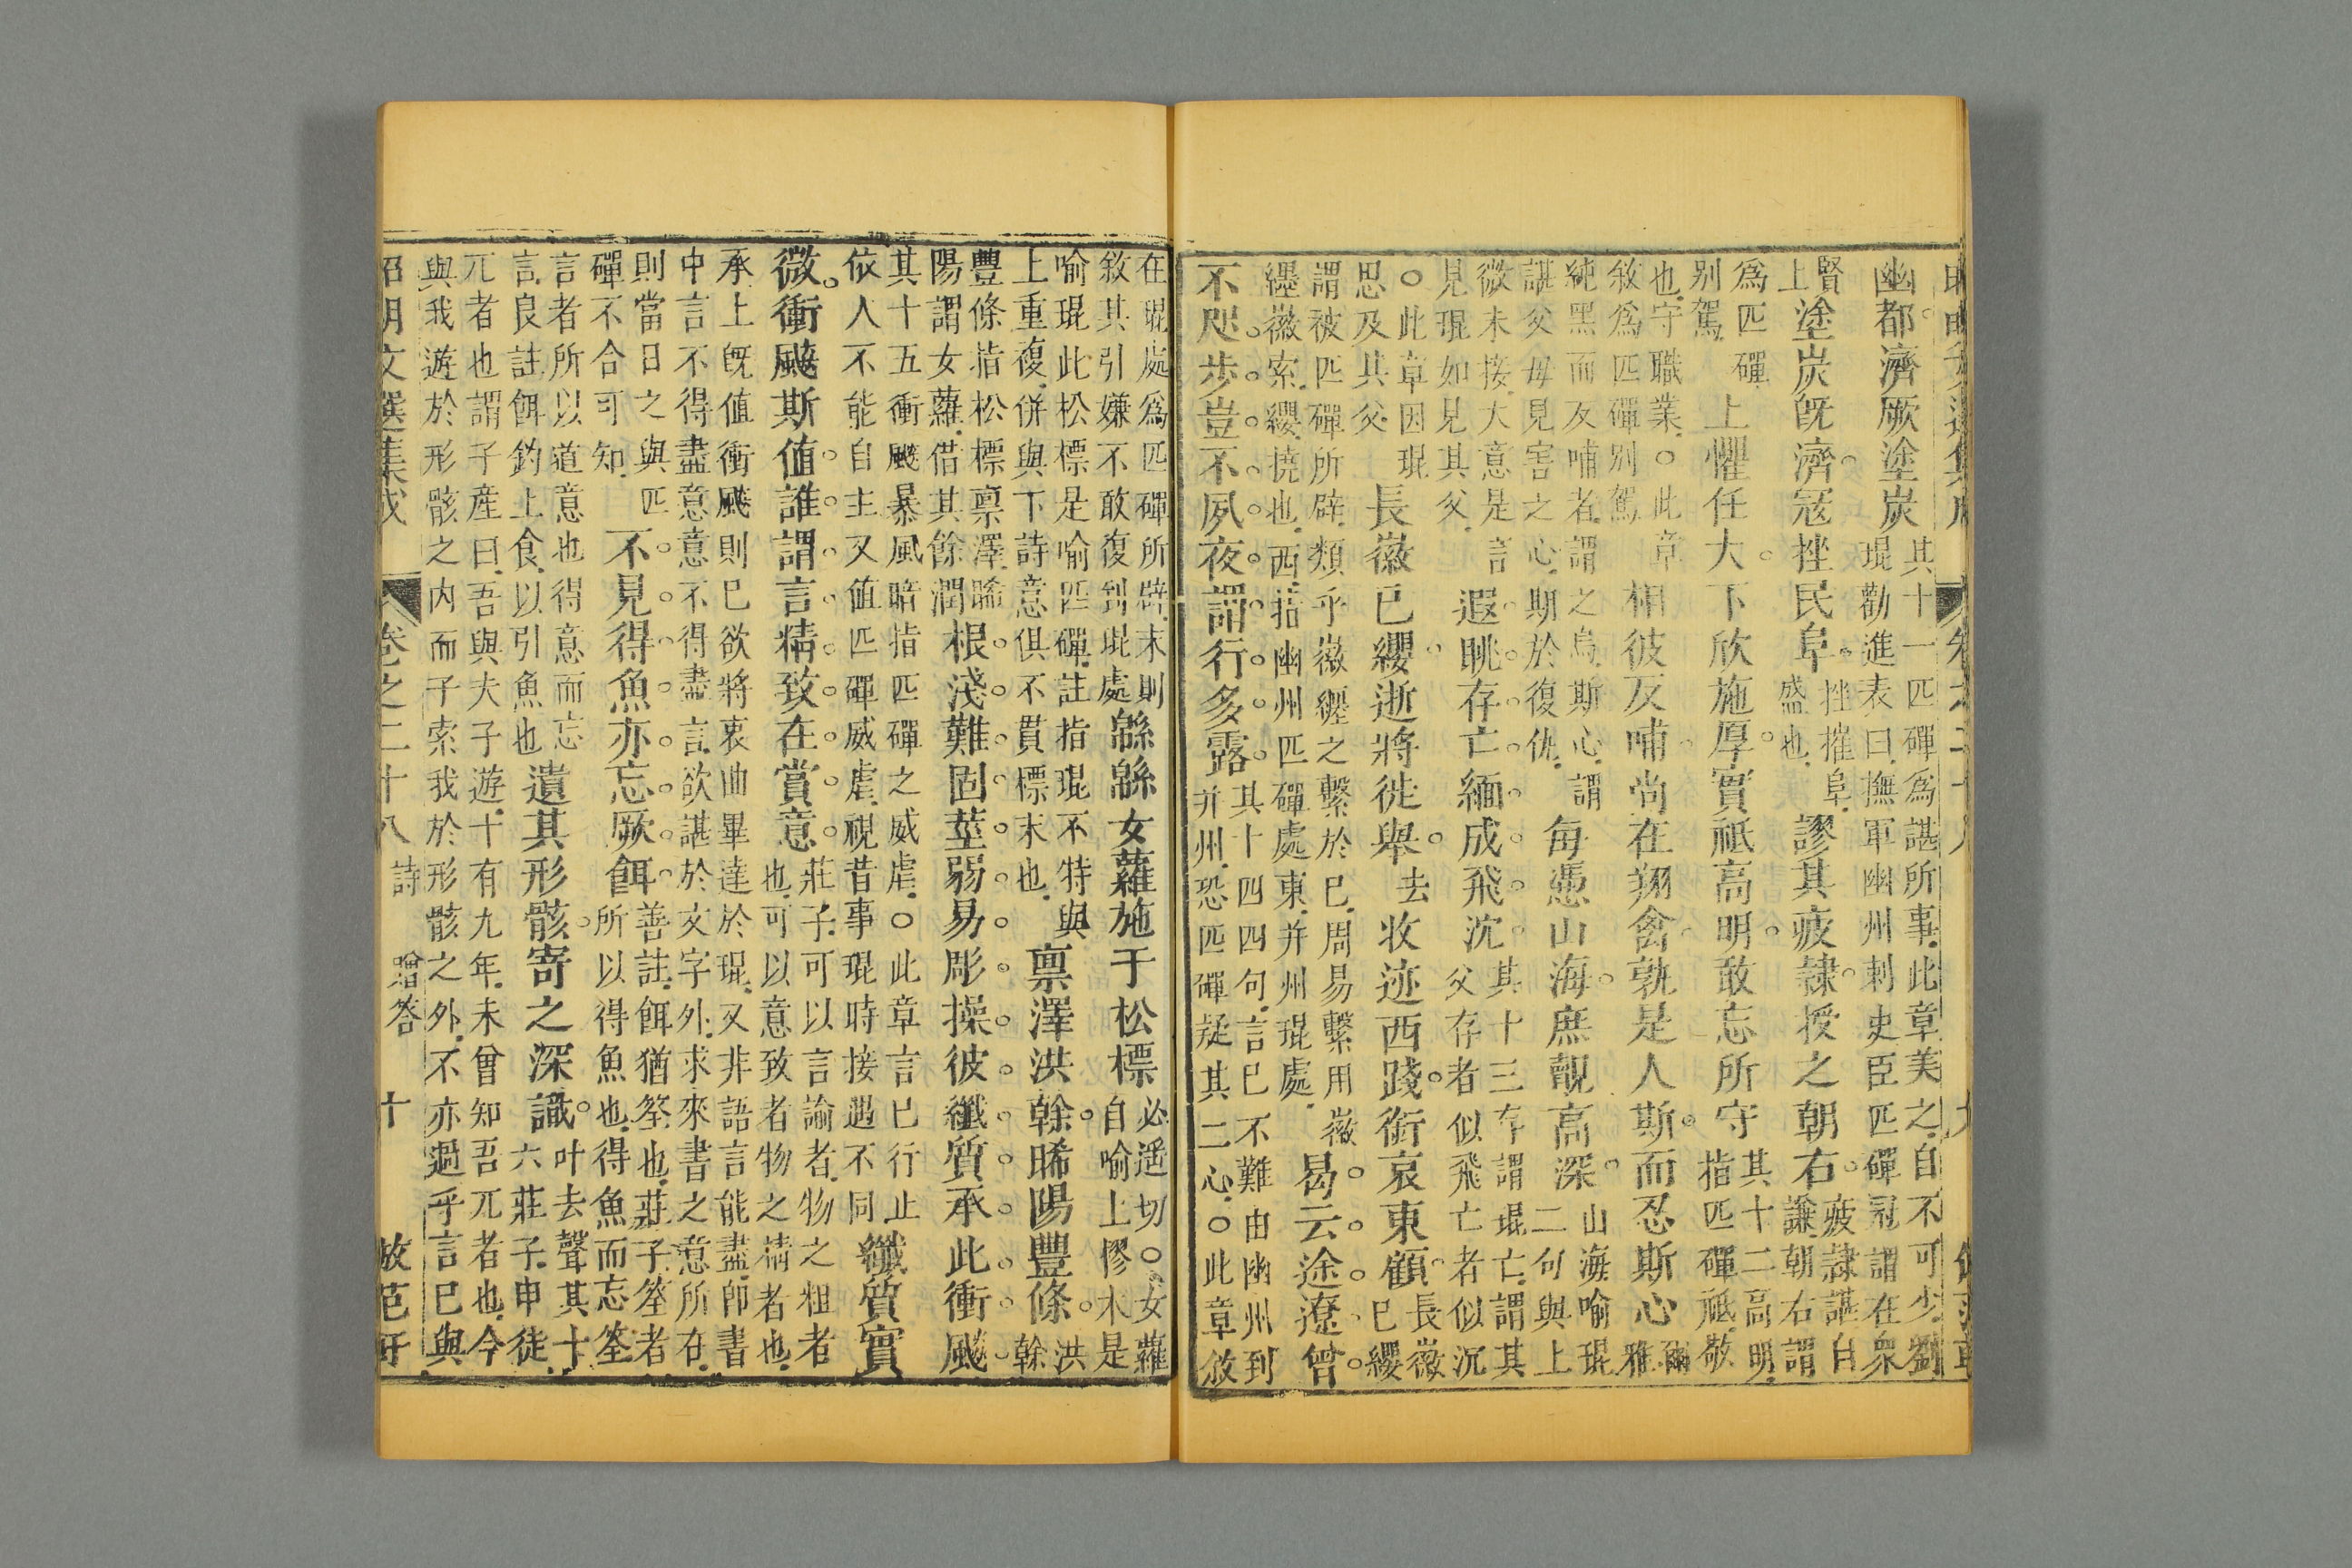 幽都濟厥塗炭其十一匹磾爲諶所事此章美之自不可少劉
琨勸進表曰撫軍幽州刺史臣匹磾冠謂在衆
賢
上塗炭旣濟冦挫民阜挫摧阜
盛也謬其疲隷授之朝右疲隷諶自
謙朝右謂
爲匹磾
别駕上懼任大下欣施厚實祗高明敢忘所守其十二高明
指匹磾祗敬
也守職業○此章
敘爲匹磾别駕相彼反哺尚在翔禽孰是人斯而忍斯心爾
雅
純黑而反哺者謂之烏斯心謂
諶父母見害之心期於復仇每憑山海庶覿高深山海喻琨
二句與上
微未接大意是言
見琨如見其父遐眺存亡緬成飛沈其十三存謂琨亡謂其
父存者似飛亡者似沉
○此章因琨
思及其父長徽已纓逝將徙舉去收迹西踐銜哀東顧長徽
已纓
謂被匹磾所辟類乎徽纆之繫於己周易繫用徽
纆徽索纓撓也西指幽州匹磾處東并州琨處曷云途遼曾
不咫步豈不夙夜謂行多露其十四四句言已不難由幽州到
并州恐匹磾疑其二心○此章敘
在琨處爲匹磾所辟末則
敘其引嫌不敢復到琨處緜緜女蘿施于松標必遥切○女蘿
自喻上樛木是
喻琨此松標是喻匹磾註指琨不特與
上重復併與下詩意俱不貫標末也禀澤洪榦晞陽豐條洪
榦
豐條指松標禀澤晞
陽謂女蘿借其餘潤根淺難固莖弱易彫操彼纖質承此衝飈
其十五衝飈暴風暗指匹磾之威虐○此章言已行止
依人不能自主又值匹磾威虐視昔事琨時接遇不同纖質實
微衝飈斯值誰謂言精致在賞意莊子可以言論者物之粗者
也可以意致者物之精者也
承上旣值衝飈則已欲將衷曲畢達於琨又非語言能盡卽書
中言不得盡意意不得盡言欲諶於文字外求來書之意所在
則當日之與匹
磾不合可知不見得魚亦忘厥餌善註餌猶筌也莊子筌者
所以得魚也得魚而忘筌
言者所以道意也得意而忘
言良註餌釣上食以引魚也遺其形骸寄之深識叶去聲其十
六莊子申徒
兀者也謂子産曰吾與夫子遊十有九年未曾知吾兀者也今
與我遊於形骸之内而子索我於形骸之外不亦過乎言已與
昭明文選集成 卷之二十八 詩 贈答 十